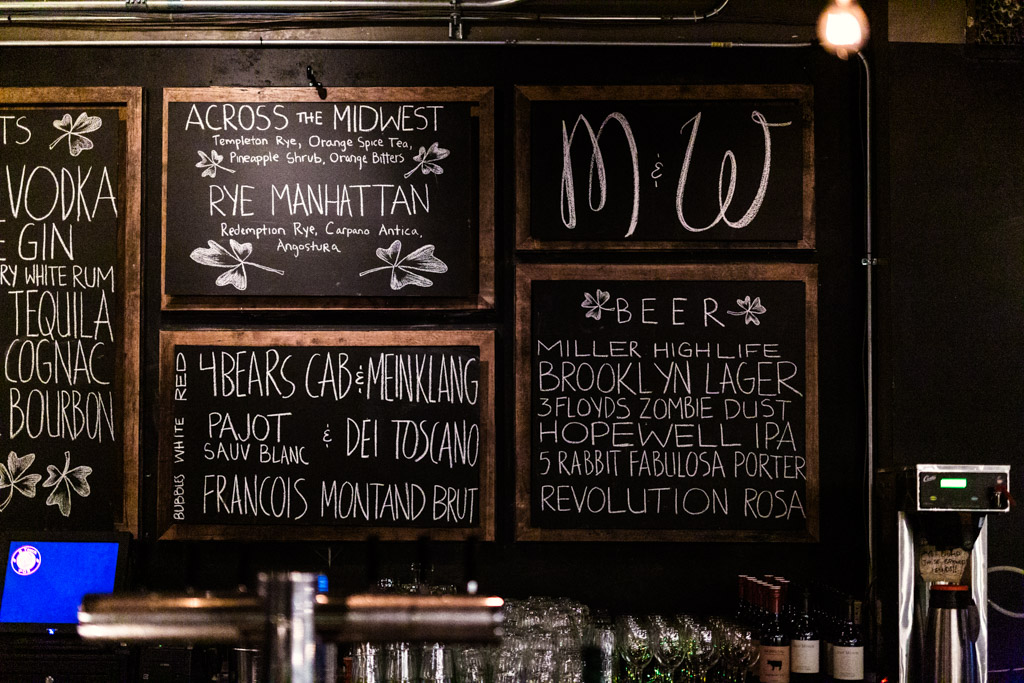 TS
VODKA
GIN
RY WHITE RUM
TEQUILA
COGNAC
BOURBON
ACROSS THE MIDWEST
Templeton Rye, Orange Spice Tea,
Pineapple Shrub, Orange Bitters
RYE MANHATTAN
Redemption Rye, Carpano Antica,
Angostura
RED
4BEARS CAB & MEINKLANG
WHITE
PAJOT & DEI TOSCANO
SAUV BLANC
BUBBLES
FRANCOIS MONTAND BRUT
M & W
BEER
MILLER HIGH LIFE
BROOKLYN LAGER
3 FLOYDS ZOMBIE DUST
HOPEWELL IPA
5 RABBIT FABULOSA PORTER
REVOLUTION ROSA